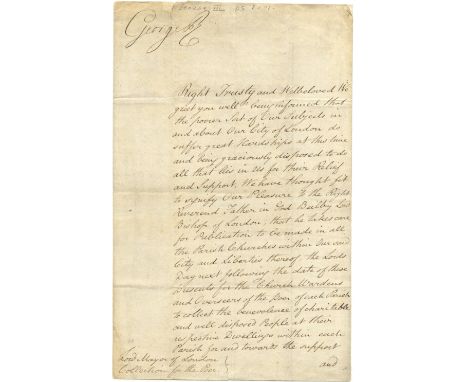 George III
George R
Right Trusty and Welbeloved We
greet you well being informed that
the poorer Sort of Our Subjects in
and about Our City of London do
suffer great Hardships at this time
and being graciously disposed to do
all that lies in Us for their Relief
and Support, We have thought fit
to signify Our Pleasure to the Right
Reverend Father in God Bielby Lord
Bishop of London, that he takes care
for Publication to be made in all
the Parish Churches within Our said
City and Liberties thereof the Lords
Day next following the date of these
Presents for the Church Wardens
and Overseers of the Poor of each Parish
to collect the benevolence of charitable
and well disposed People at their
respective Dwellings within each
Parish for and towards the support
and
Lord Mayor of London
Collection for the Poor